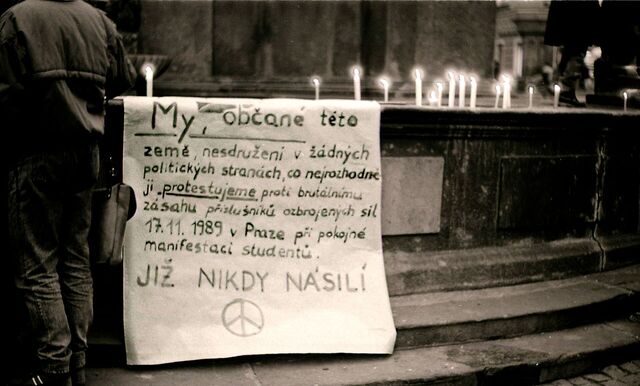 My, občané této
země, nesdružení v žádných
politických stranách, co nejrozhodně
ji protestujeme proti brutálnímu
zásahu příslušníků ozbrojených sil
17.11. 1989 v Praze při pokojné
manifestaci studentů.
JIŽ NIKDY NÁSILÍ